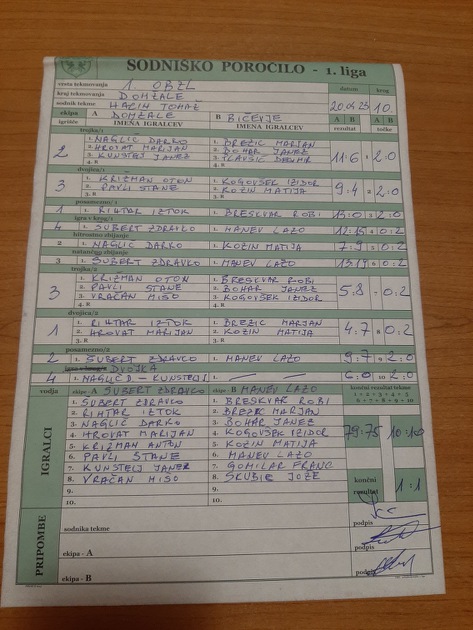 SODNIŠKO POROČILO - 1. liga
vrsta tekmovanja 1. OBZL datum krog
kraj tekmovanja DOMŽALE
sodnik tekme HACIN TOMAŽ 20.04.23 10.
ekipa A DOMŽALE B BIČEVJE A B A B
igrišče IMENA IGRALCEV IMENA IGRALCEV rezultat točke
trojka/1
2 1. NAGLIČ DARKO 1. BREZIC MARJAN 11:6 1 2:0
2. HROVAT MARIJAN 2. BOHAR JANEZ
3. KUNSTELJ JANEZ 3.
4. R 4. R
dvojica/1
3 1. KRIZMAN OTON 1. KOGOVŠEK IZIDOR 9:4 2 2:0
2. PAVLI STANE 2. KOZIN MATIJA
3. R 3. R
posamezno/1
1 1. RIHTAR IZTOK 1. BRESKVAR ROBI 15:0 3 2:0
igra v krog/1
4 1. SUBERT ZDRAVKO 1. MANEV LAZO 12:15 4 0:2
hitrostno zbijanje
2 1. NAGLIČ DARKO 1. KOZIN MATIJA 7:9 5 0:2
natančno zbijanje
3 1. SUBERT ZDRAVKO 1. MANEV LAZO 13:19 6 0:2
trojka/2
3 1. KRIZMAN OTON 1. BRESKVAR ROBI 5:8 7 0:2
2. PAVLI STANE 2. BOHAR JANEZ
3. VRAČAN MISO 3. KOGOVŠEK IZIDOR
4. R 4. R
dvojica/2
1 1. RIHTAR IZTOK 1. BREZIC MARJAN 4:7 8 0:2
2. HROVAT MARIJAN 2. KOZIN MATIJA
3. R 3. R
posamezno/2
2 1. SUBERT ZDRAVKO 1. MANEV LAZO 9:7 9 2:0
DVOJKA
4 1. NAGLIČ D - KUNSTELJ J 1. 6:0 10 2:0
vodja ekipe A SUBERT ZDRAVKO ekipe B MANEV LAZO končni rezultat tekme
IGRALCI 1. SUBERT ZDRAVKO 1. BRESKVAR ROBI 1 + 2 + 3 + 4 + 5
2. RIHTAR IZTOK 2. BREZIC MARJAN + 6 + 7 + 8 + 9 + 10
3. NAGLIČ DARKO 3. BOHAR JANEZ
4. HROVAT MARIJAN 4. KOGOVŠEK IZIDOR 79:75 10:10
5. KRIZMAN ANTON 5. KOZIN MATIJA
6. PAVLI STANE 6. MANEV LAZO
7. KUNSTELJ JANEZ 7. GOMILAR FRANC
8. VRAČAN MISO 8. SKUBIC JOŽE končni
9. 9. rezultat 1:1
10. 10.
PRIPOMBE sodnika tekme podpis
ekipa - A podpis
ekipa - B podpis